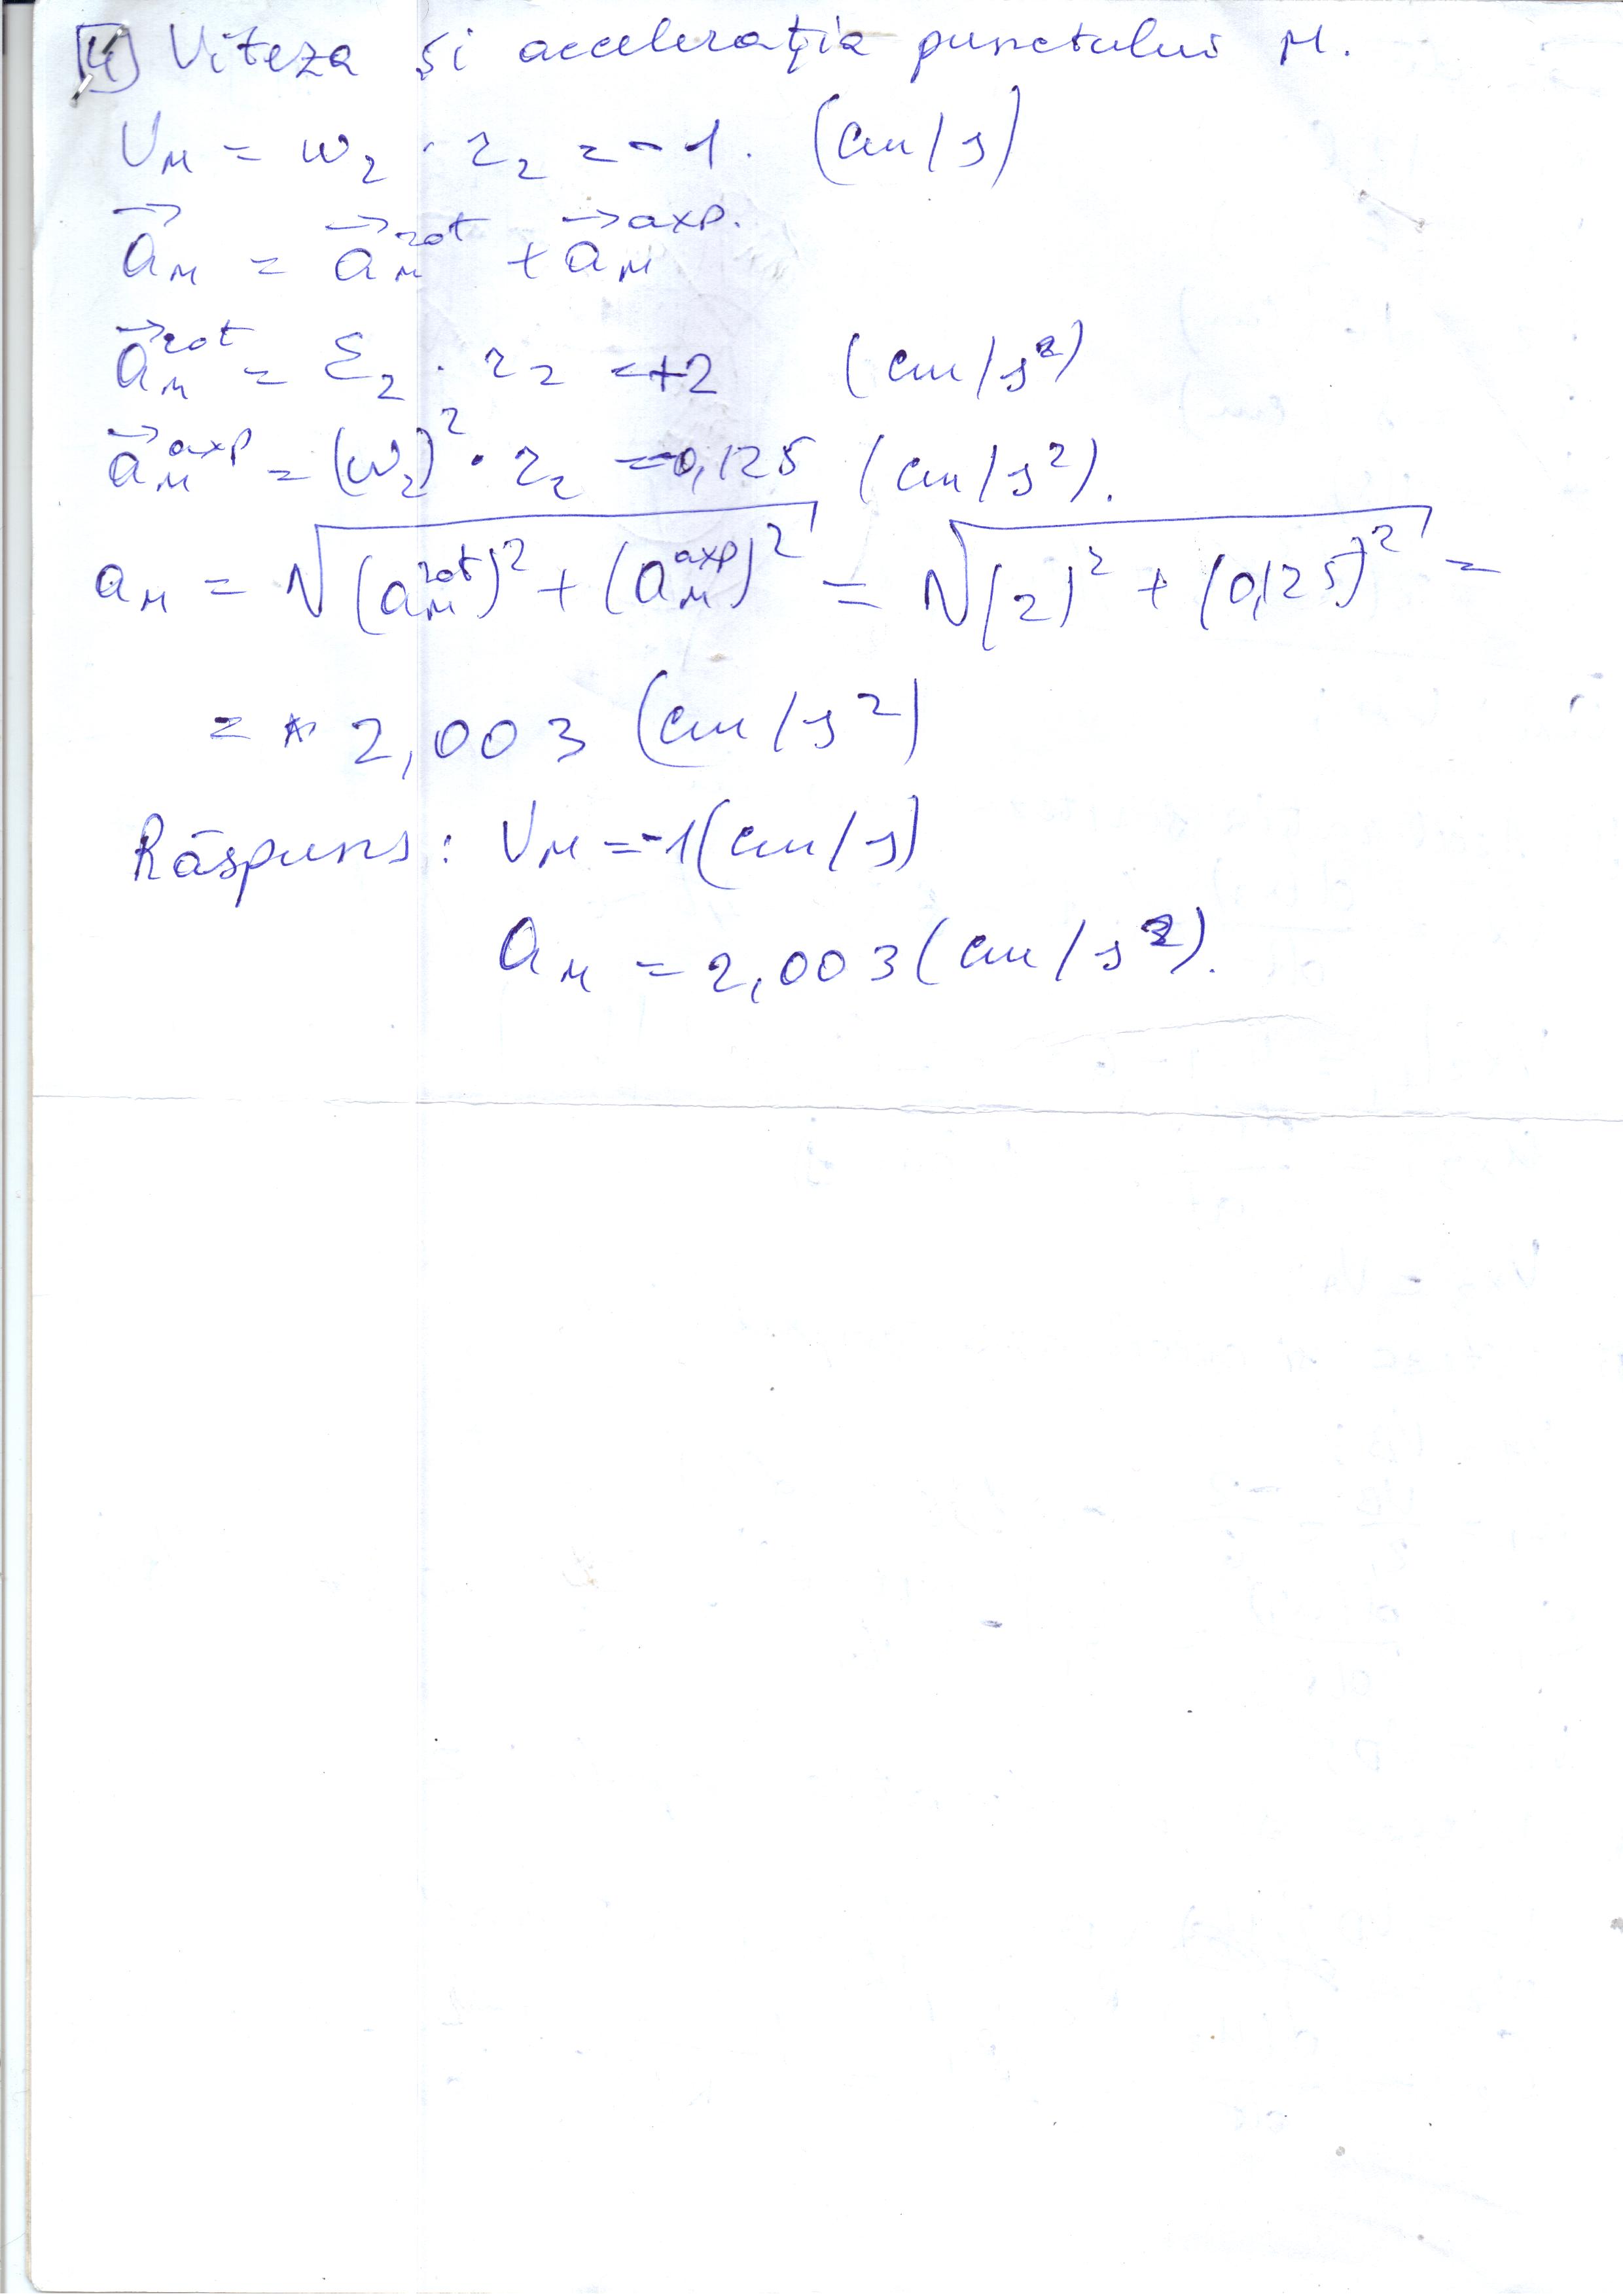 4) Viteza și accelerația punctului M.
V_M = ω_2 · r_2 = -1. (cm/s)
a⃗_M = a⃗_M^rot + a⃗_M^axp.
a⃗_M^rot = ε_2 · r_2 = +2 (cm/s²)
a⃗_M^axp = (ω_2)² · r_2 = 0,125 (cm/s²).
a_M = √((a_M^rot)² + (a_M^axp)²) = √((2)² + (0,125)²) =
= 2,003 (cm/s²)
Răspuns: V_M = -1 (cm/s)
a_M = 2,003 (cm/s²).